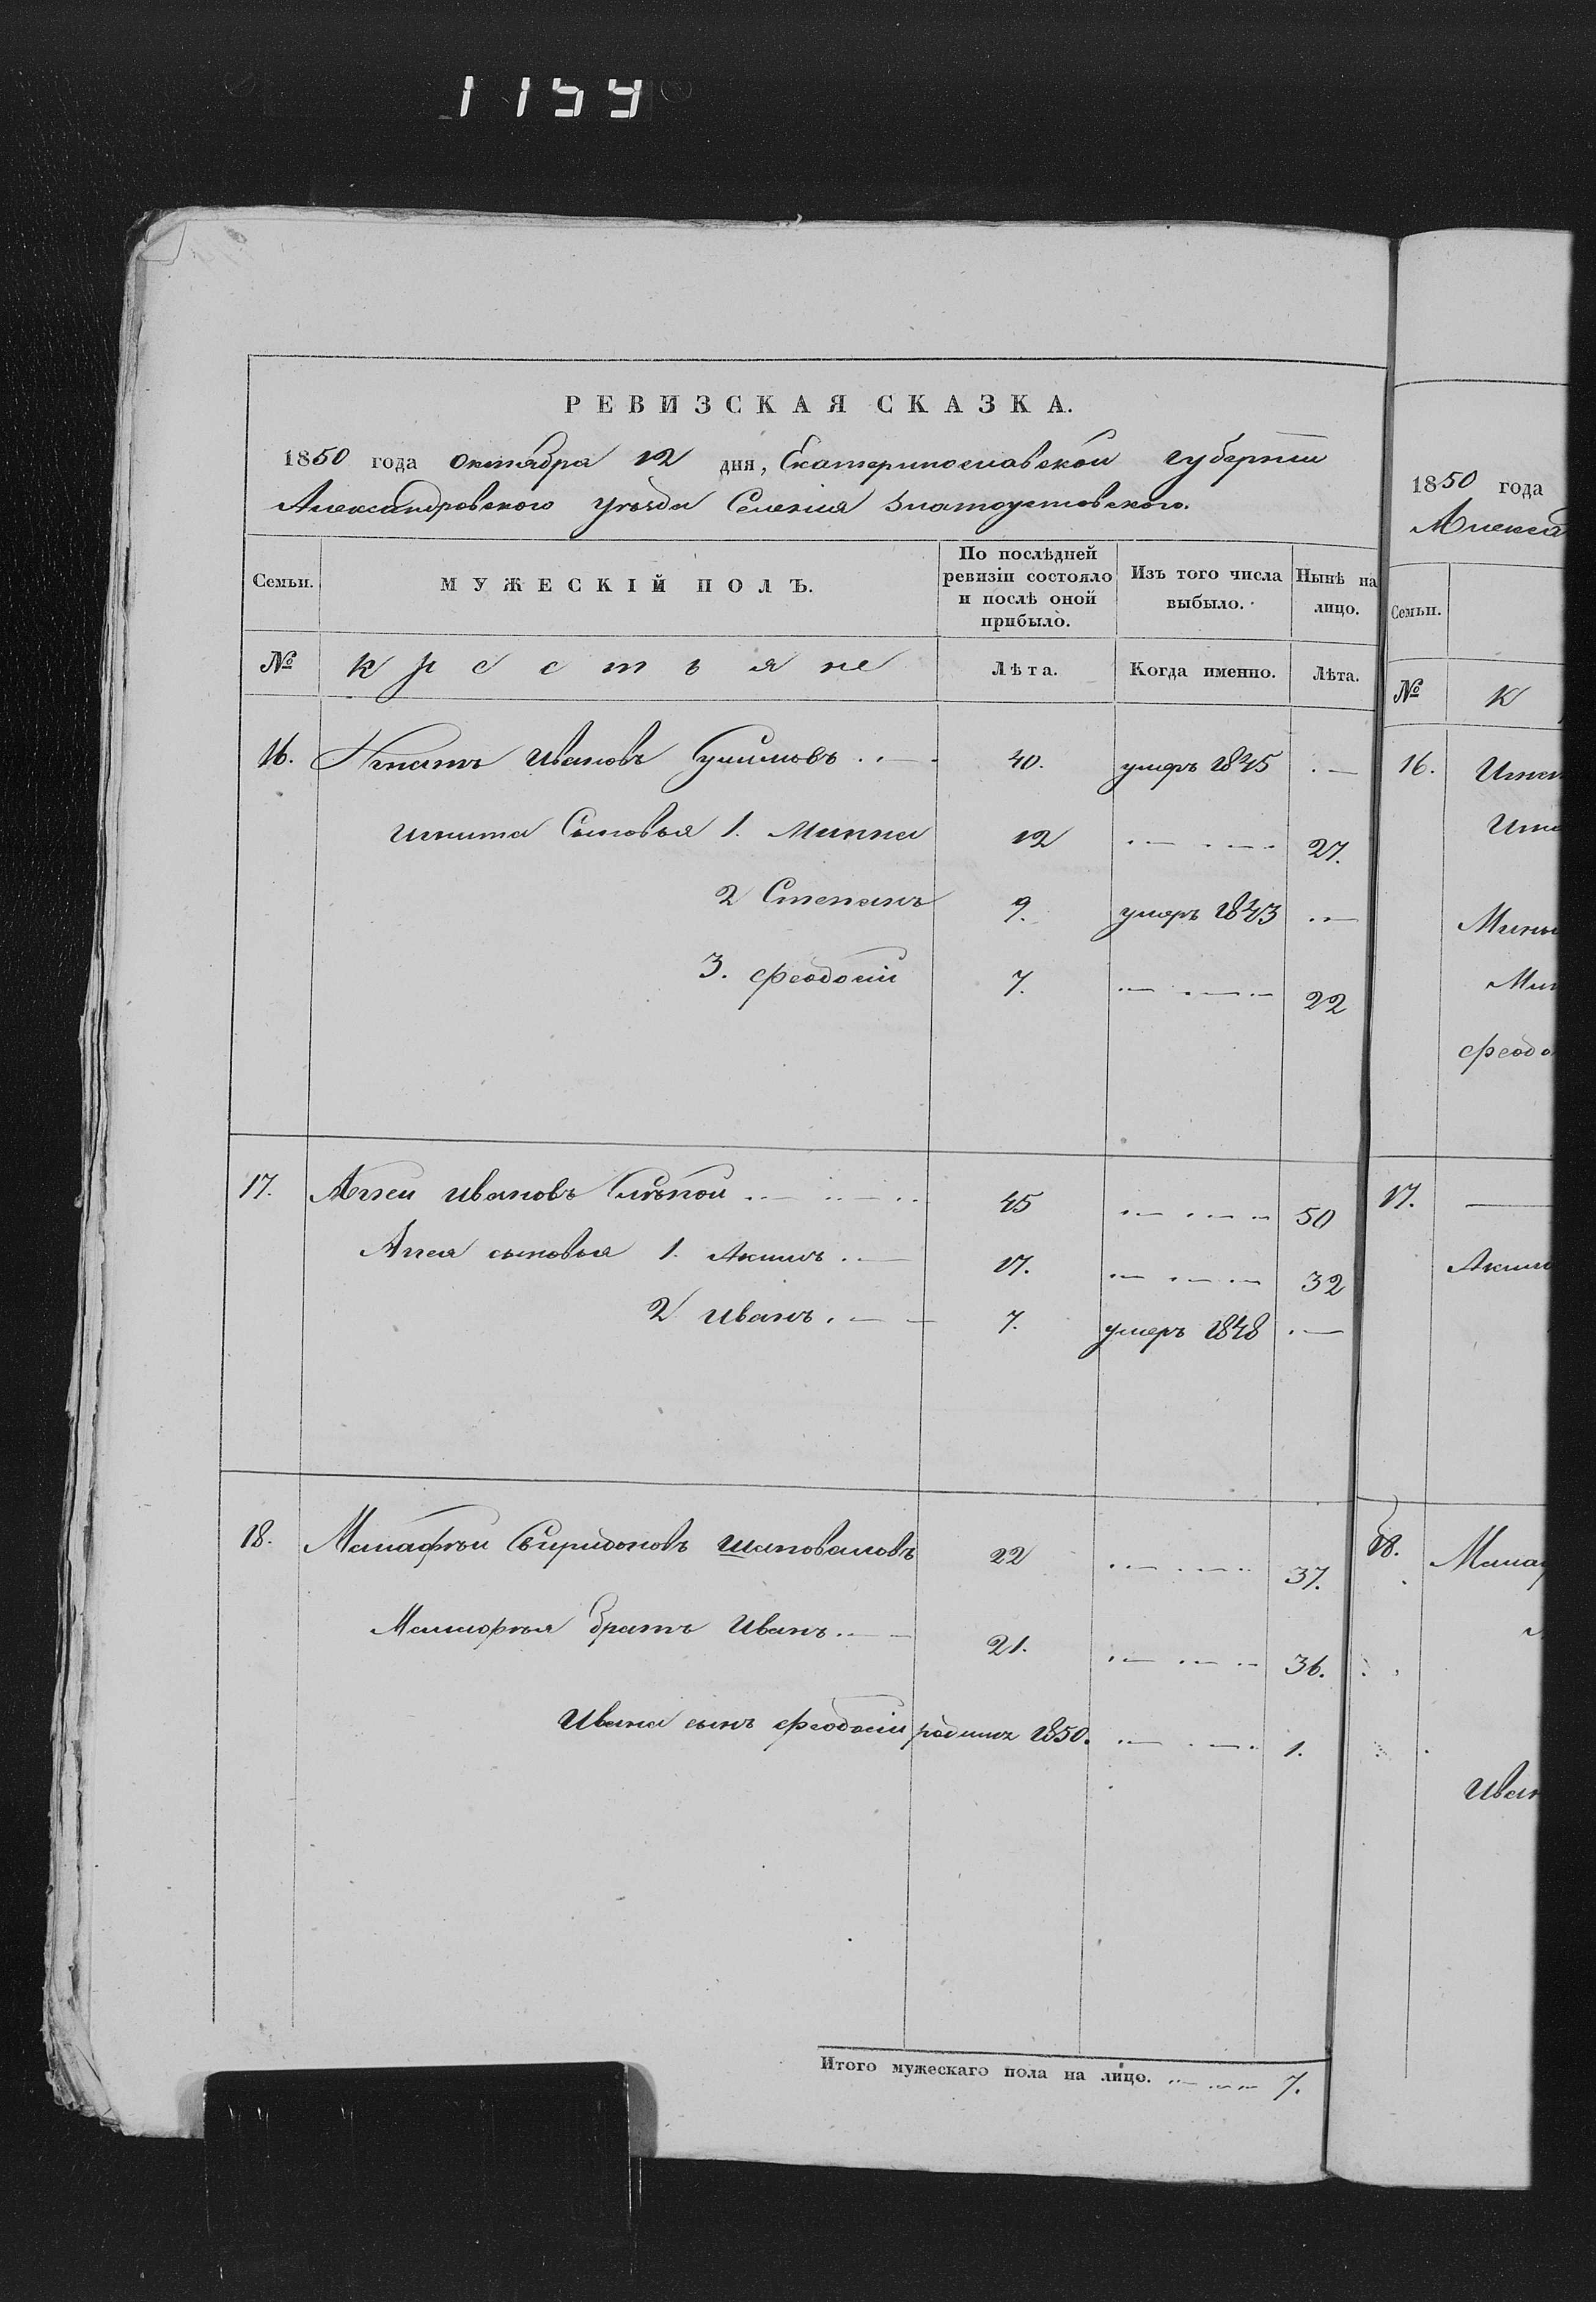 1159
РЕВИЗСКАЯ СКАЗКА.
1850 года октября 12 дня, Екатеринославской губернии
Александровского уѣзда Селенія Златоустовского.
Семьи. МУЖЕСКІЙ ПОЛЪ. По послѣдней ревизіи состояло и послѣ оной прибыло. Изъ того числа выбыло. Нынѣ на лицо.
№ крестьяне Лѣта. Когда именно. Лѣта.
16. Игнатъ Ивановъ 40. умеръ 1845
Сыновья 1. Минна 12 27.
2 Степанъ 9. умеръ 1843
3. Феодосіи 7. 22
17. Аггеи Ивановъ Слѣпои 45 50
Аггея сыновья 1. Акимъ 17. 32
2 Иванъ 7. умеръ 1848
18. Малафѣи Свиридоновъ Шаповаловъ 22 37.
Малафѣя братъ Иванъ 21. 36.
Ивана сынъ Феодосіи 1850. 1.
Итого мужескаго пола на лицо. 7.
1850 года
Алекса
Семьи.
№ К
16.
Феодо
17.
Аким
18. Мала
Иван